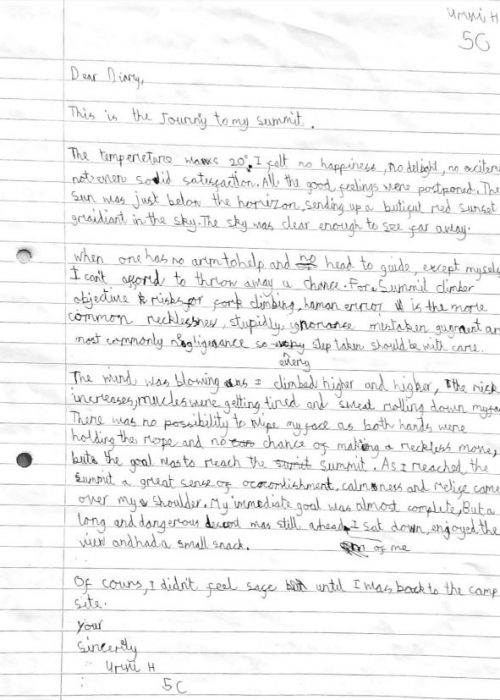 Urmi H
5C
Dear Diary,
This is the Journy to my summit.
The temperetare was 20°. I felt no happiness, no delight, no exciten
not even solid satisfaction. All the good feelings were postponed. The
sun was just below the horizon, sending up a butigul red sunset
graidiant in the sky. The sky was clear enough to see far away.
when one has no arm to help and no head to guide, except mysels
I can't agord to throw away a chance. For a Summit climber
objective risks for climbing, human error is the more
common recklessnes, stupidly, ignorance mistaken and
most commonly negligenance so every step taken should be with care.
The wind was blowing as I climbed higher and higher, the rick
increases, muscles were getting tired and sweat rolling down my
There was no possibility to wipe my face as both hands were
holding the rope and no chance of making a reckless move,
but the goal was to reach the summit. As I reached the
summit a great sense of calmness and relige came
over my shoulder. My immediate goal was almost complete, But a
long and dangerous decent was still ahead of me. I sat down, enjoyed the
view and had a small snack.
Of cours, I didn't feel sage until I was back to the camp
site.
your
Sincerely
Urmi H
5C